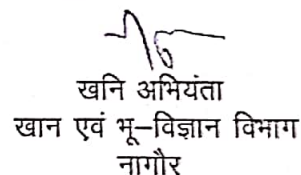 खनि अभियंता
खान एवं भू–विज्ञान विभाग
नागौर